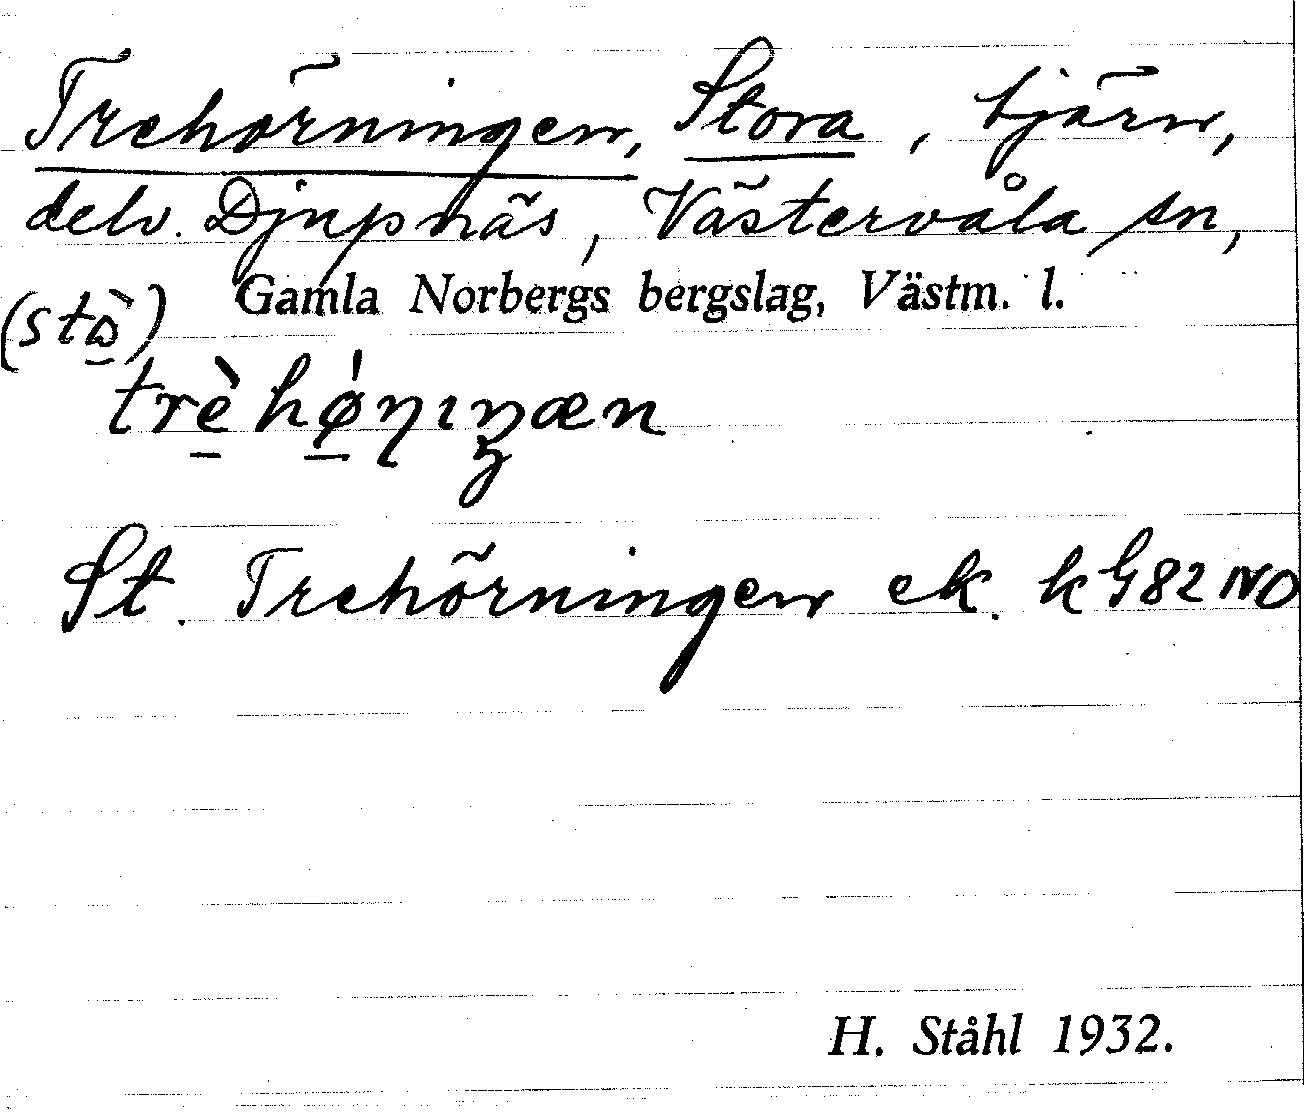 Trehörningen, Stora, tjärn,
delv. Djupnäs, Västervåla sn,
Gamla Norbergs bergslag, Västm. l.
(stɷ̲̀)
trè̲hǿ̲ɳıŋæn
St. Trehörningen ek. kG82NO
H. Ståhl 1932.